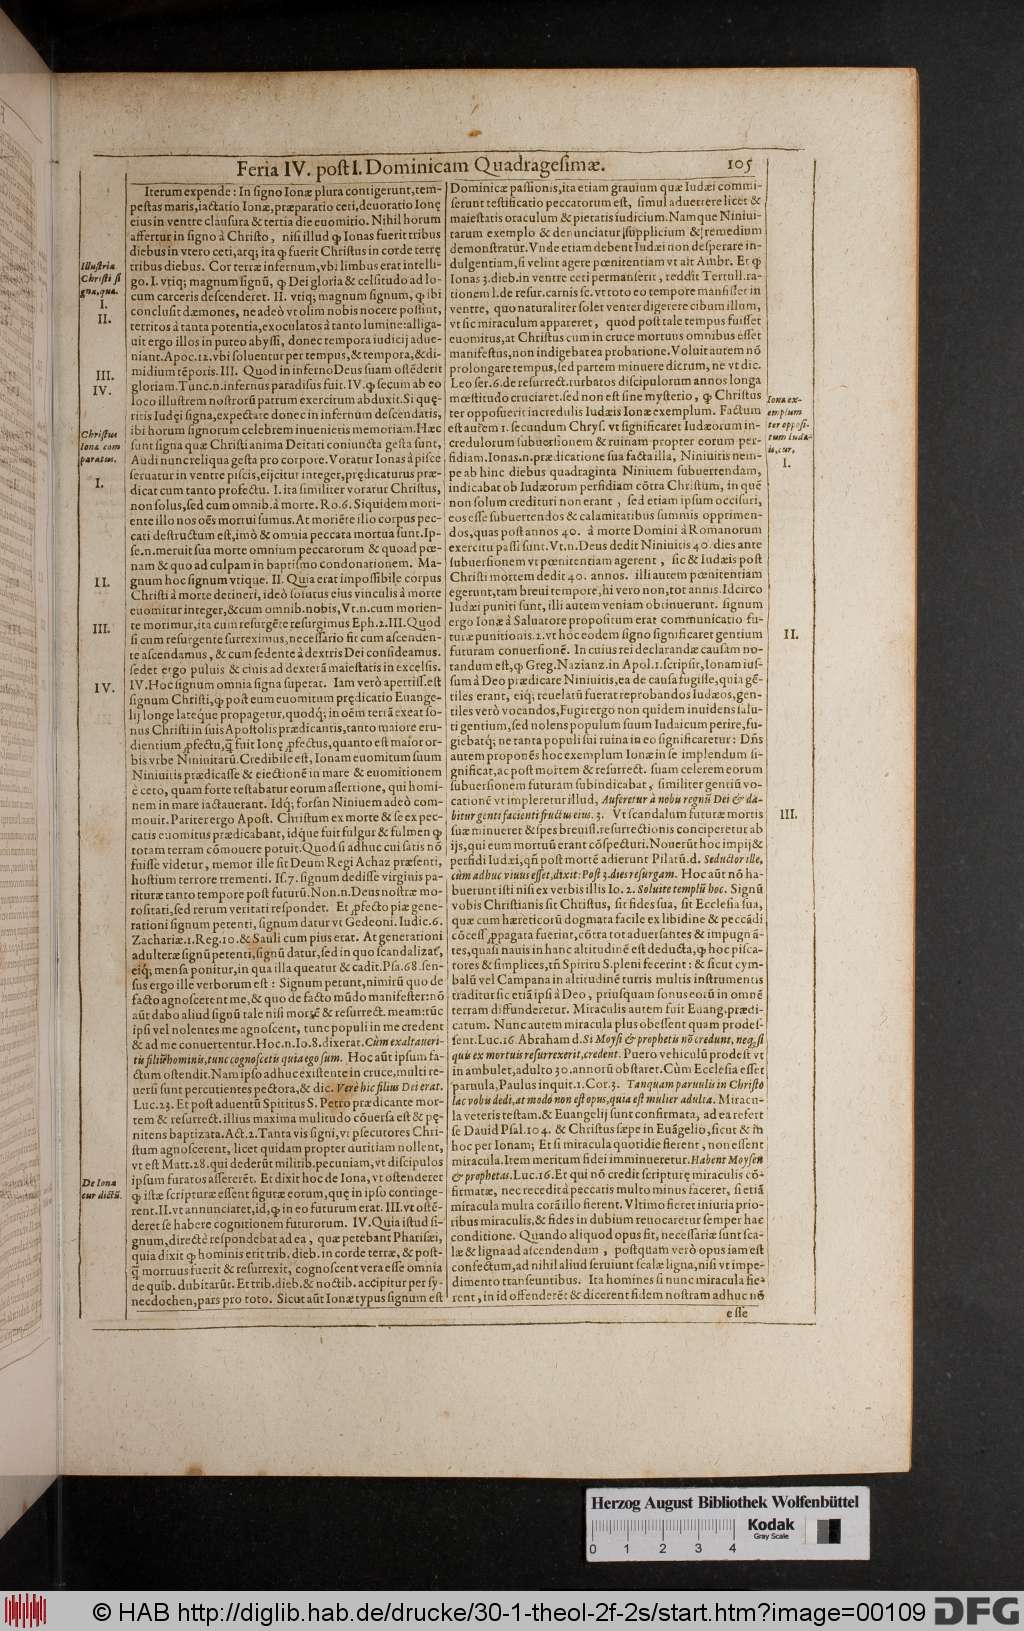 Feria IV. post I. Dominicam Quadragesimæ. 105
Iterum expende: In signo Ionæ plura contigerunt, tem-
pestas maris, iactatio Ionæ, præparatio ceti, deuoratio Ionę
eius in ventre clausura & tertia die euomitio. Nihil horum
affertur in signo à Christo, nisi illud ꝙ Ionas fuerit tribus
diebus in vtero ceti, atq; ita ꝙ fuerit Christus in corde terrę
tribus diebus. Cor terræ infernum, vbi limbus erat intelli-
go. I. vtiq; magnum signũ, ꝙ Dei gloria & celsitudo ad lo-
cum carceris descenderet. II. vtiq; magnum signum, ꝙ ibi
conclusit dæmones, ne adeò vt olim nobis nocere possint,
territos à tanta potentia, exoculatos à tanto lumine: alliga-
uit ergo illos in puteo abyssi, donec tempora iudicij adue-
niant. Apoc. 12. vbi soluentur per tempus, & tempora, & di-
midium tẽporis. III. Quod in inferno Deus suam ostẽderit
gloriam. Tunc.n. infernus paradisus fuit. IV. ꝙ secum ab eo
loco illustrem nostrorũ patrum exercitum abduxit. Si quę-
ritis Iudęi signa, expectate donec in infernum descendatis,
ibi horum signorum celebrem inuenietis memoriam. Hæc
sunt signa quæ Christi anima Deitati coniuncta gesta sunt,
Audi nunc reliqua gesta pro corpore. Voratur Ionas à pisce
seruatur in ventre piscis, eijcitur integer, prędicaturus præ-
dicat cum tanto profectu. I. ita similiter voratur Christus,
non solus, sed cum omnib. à morte. Ro. 6. Siquidem mori-
ente illo nos oẽs mortui sumus. At moriẽte illo corpus pec-
cati destructum est, imò & omnia peccata mortua sunt. Ip-
se.n. meruit sua morte omnium peccatorum & quoad pœ-
nam & quo ad culpam in baptismo condonationem. Ma-
gnum hoc signum vtique. II. Quia erat impossibile corpus
Christi à morte detineri, ideò solutus eius vinculis à morte
euomitur integer, & cum omnib. nobis, Vt.n. cum morien-
te morimur, ita cum resurgẽte resurgimus Eph. 2. III. Quod
si cum resurgente surreximus, necessario fit cum ascenden-
te ascendamus, & cum sedente à dextris Dei consideamus.
sedet ergo puluis & cinis ad dexterã maiestatis in excelsis.
IV. Hoc signum omnia signa superat. Iam verò apertiss. est
signum Christi, ꝙ post eum euomitum prędicatio Euange-
lij longe latéque propagetur, quodq; in oẽm terrã exeat so-
nus Christi in suis Apostolis prædicantis, tanto maiore eru-
dientium ꝓfectu, q̃ fuit Ionę ꝓfectus, quanto est maior or-
bis vrbe Niniuitarũ. Credibile est, Ionam euomitum suum
Niniuitis prædicasse & eiectionẽ in mare & euomitionem
è ceto, quam forte testabatur eorum assertione, qui homi-
nem in mare iactauerant. Idq; forsan Niniuem adeò com-
mouit. Pariter ergo Apost. Christum ex morte & se ex pec-
catis euomitus prædicabant, idque fuit fulgur & fulmen ꝙ
totam terram cõmouere potuit. Quod si adhuc cui satis nõ
fuisse videtur, memor ille sit Deum Regi Achaz præsenti,
hostium terrore trementi. Is. 7. signum dedisse virginis pa-
rituræ tanto tempore post futurũ. Non.n. Deus nostræ mo-
rositati, sed rerum veritati respondet. Et ꝓfecto piæ gene-
rationi signum petenti, signum datur vt Gedeoni. Iudic. 6.
Zachariæ. 1. Reg. 10. & Sauli cum pius erat. At generationi
adulteræ signũ petenti, signũ datur, sed in quo scandalizat͛,
eiq; mensa ponitur, in qua illa queatur & cadit. Psa. 68. sen-
sus ergo ille verborum est: Signum petunt, nimirũ quo de
facto agnoscerent me, & quo de facto mũdo manifester: nõ
aũt dabo aliud signũ tale nisi mortẽ & resurrect. meam: tũc
ipsi vel nolentes me agnoscent, tunc populi in me credent
& ad me conuertentur. Hoc.n. Io. 8. dixerat. Cùm exaltaueri-
tis filiũ hominis, tunc cognoscetis quia ego sum. Hoc aũt ipsum fa-
ctum ostendit. Nam ipso adhuc existente in cruce, multi re-
uersi sunt percutientes pectora, & dic. Verè hic filius Dei erat.
Luc. 23. Et post aduentũ Spiritus S. Petro prædicante mor-
tem & resurrect. illius maxima multitudo cõuersa est & pę-
nitens baptizata. Act. 2. Tanta vis signi, vt ꝑsecutores Chri-
stum agnoscerent, licet quidam propter auritiam nollent,
vt est Matt. 28. qui dederũt militib. pecuniam, vt discipulos
ipsum furatos assererẽt. Et dixit hoc de Iona, vt ostenderet
ꝙ istæ scripturæ essent figuræ eorum, quę in ipso continge-
rent. II. vt annunciaret, id, ꝙ in eo futurum erat. III. vt ostẽ-
deret se habere cognitionem futurorum. IV. Quia istud si-
gnum, directè respondebat ad ea, quæ petebant Pharisæi,
quia dixit ꝙ hominis erit trib. dieb. in corde terræ, & post-
q̃ mortuus fuerit & resurrexit, cognoscent vera esse omnia
de quib. dubitarũt. Et trib. dieb. & noctib. accipitur per sy-
necdochen, pars pro toto. Sicut aũt Ionæ typus signum est
Illustria
Christi si
gna, quæ.
I.
II.
III.
IV.
Christus
Iona com
paratus.
I.
II.
III.
IV.
De Iona
cur dictũ.
Dominicæ passionis, ita etiam grauium quæ Iudæi commi-
serunt testificatio peccatorum est, simul aduertere licet &
maiestatis oraculum & pietatis iudicium. Namque Niniui-
tarum exemplo & denunciatur supplicium & remedium
demonstratur. Vnde etiam debent Iudæi non desperare in-
dulgentiam, si velint agere pœnitentiam vt ait Ambr. Et ꝙ
Ionas 3. dieb. in ventre ceti permanserit, reddit Tertull. ra-
tionem l. de resur. carnis sc. vt toto eo tempore mansisset in
ventre, quo naturaliter solet venter digerere cibum illum,
vt sic miraculum appareret, quod post tale tempus fuisset
euomitus, at Christus cum in cruce mortuus omnibus esset
manifestus, non indigebat ea probatione. Voluit autem nõ
prolongare tempus, sed partem minuere dierum, ne vt dic.
Leo ser. 6. de resurrect. turbatos discipulorum annos longa
mœstitudo cruciaret. sed non est sine mysterio, ꝙ Christus
ter opposuerit incredulis Iudæis Ionæ exemplum. Factum
est autem 1. secundum Chrys. vt significaret Iudæorum in-
credulorum subuersionem & ruinam propter eorum per-
fidiam. Ionas.n. prædicatione sua facta illa, Niniuitis nem-
pe ab hinc diebus quadraginta Niniuem subuertendam,
indicabat ob Iudæorum perfidiam cõtra Christum, in quẽ
non solum credituri non erant, sed etiam ipsum occisuri,
eos esse subuertendos & calamitatibus summis opprimen-
dos, quas post annos 40. à morte Domini à Romanorum
exercitu passi sunt. Vt.n. Deus dedit Niniuitis 40. dies ante
subuersionem vt pœnitentiam agerent, sic & Iudæis post
Christi mortem dedit 40. annos. illi autem pœnitentiam
egerunt, tam breui tempore, hi vero non, tot annis. Idcirco
Iudæi puniti sunt, illi autem veniam obtinuerunt. signum
ergo Ionæ à Saluatore propositum erat communicatio fu-
turæ punitionis. 2. vt hoc eodem signo significaret gentium
futuram conuersionẽ. In cuius rei declarandæ causam no-
tandum est, ꝙ Greg. Nazianz. in Apol. 1. scripsit, Ionam ius-
sum à Deo prædicare Niniuitis, ea de causa fugisse, quia gẽ-
tiles erant, eiq; reuelatũ fuerat reprobandos Iudæos, gen-
tiles verò vocandos, Fugit ergo non quidem inuidens salu-
ti gentium, sed nolens populum suum Iudaicum perire, fu-
giebatq; ne tanta populi sui ruina in eo significaretur: Dñs
autem proponẽs hoc exemplum Ionæ in se implendum si-
gnificat, ac post mortem & resurrect. suam celerem eorum
subuersionem futuram subindicabat, similiter gentiũ vo-
cationẽ vt impleretur illud, Auferetur à nobis regnũ Dei & da-
bitur genti facienti fructus eius. 3. Vt scandalum futuræ mortis
suæ minueret & spes breuiss. resurrectionis conciperetur ab
ijs, qui eum mortuũ erant cõspecturi. Nouerũt hoc impij &
perfidi Iudæi, qñ post mortẽ adierunt Pilatũ.d. Seductor ille,
cùm adhuc viuus esset, dixit: Post 3. dies resurgam. Hoc aũt nõ ha-
buerunt isti nisi ex verbis illis Io. 2. Soluite templũ hoc. Signũ
vobis Christianis sit Christus, sit fides sua, sit Ecclesia sua,
quæ cum hæreticorũ dogmata facile ex libidine & peccãdi
cõcess. ꝓpagata fuerint, cõtra tot aduersantes & impugnã-
tes, quasi nauis in hanc altitudinẽ est deducta, ꝙ hoc pisca-
tores & simplices, tñ Spiritu S. pleni fecerint: & sicut cym-
balũ vel Campana in altitudinẽ turris multis instrumentis
traditur sic etiã ipsi à Deo, priusquam sonus eorũ in omnẽ
terram diffunderetur. Miraculis autem fuit Euang. prædi-
catum. Nunc autem miracula plus obessent quam prodes-
sent. Luc. 16. Abraham d. Si Moysi & prophetis nõ credunt, neq, si
quis ex mortuis resurrexerit, credent. Puero vehiculũ prodest vt
in ambulet, adulto 30. annorũ obstaret. Cùm Ecclesia esset
paruula, Paulus inquit. 1. Cor. 3. Tanquam paruulis in Christo
lac vobis dedi, at modò non est opus, quia est mulier adulta. Miracu-
la veteris testam. & Euangelij sunt confirmata, ad ea refert
se Dauid Psal. 104. & Christus sæpe in Euãgelio, sicut & in
hoc per Ionam; Et si miracula quotidie fierent, non essent
miracula. Item meritum fidei imminueretur. Habent Moysen
& prophetas. Luc. 16. Et qui nõ credit scripturę miraculis cõ-
firmatæ, nec recedit à peccatis multo minus faceret, si etiã
miracula multa corã illo fierent. Vltimo fieret iniuria prio-
ribus miraculis, & fides in dubium reuocaretur semper hac
conditione. Quando aliquod opus fit, necessariæ sunt sca-
læ & ligna ad ascendendum, postquam verò opus iam est
confectum, ad nihil aliud seruiunt scalæ ligna, nisi vt impe-
dimento transeuntibus. Ita homines si nunc miracula fie-
rent, in id offenderẽt & dicerent fidem nostram adhuc nõ
esse
Iona ex-
emplum
ter opposi-
tum Iudæ-
is, cur.
I.
II.
III.
Herzog August Bibliothek Wolfenbüttel
Kodak
Gray Scale
0 1 2 3 4
© HAB http://diglib.hab.de/drucke/30-1-theol-2f-2s/start.htm?image=00109
DFG